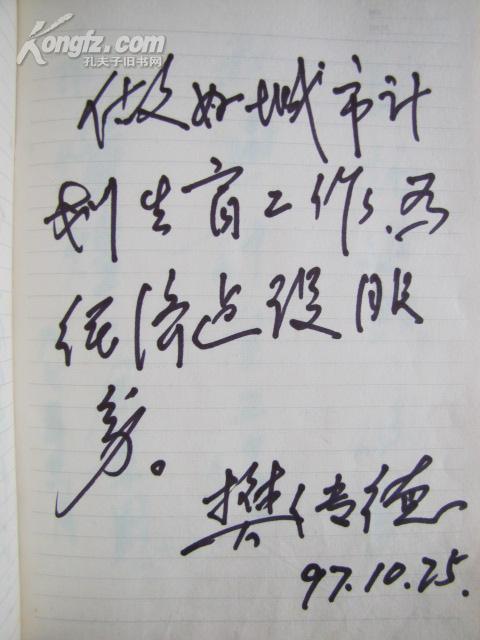 Kongfz.com
孔夫子旧书网
做好城市计
划生育工作、为
经济建设服
务。
樊传德
97.10.25.